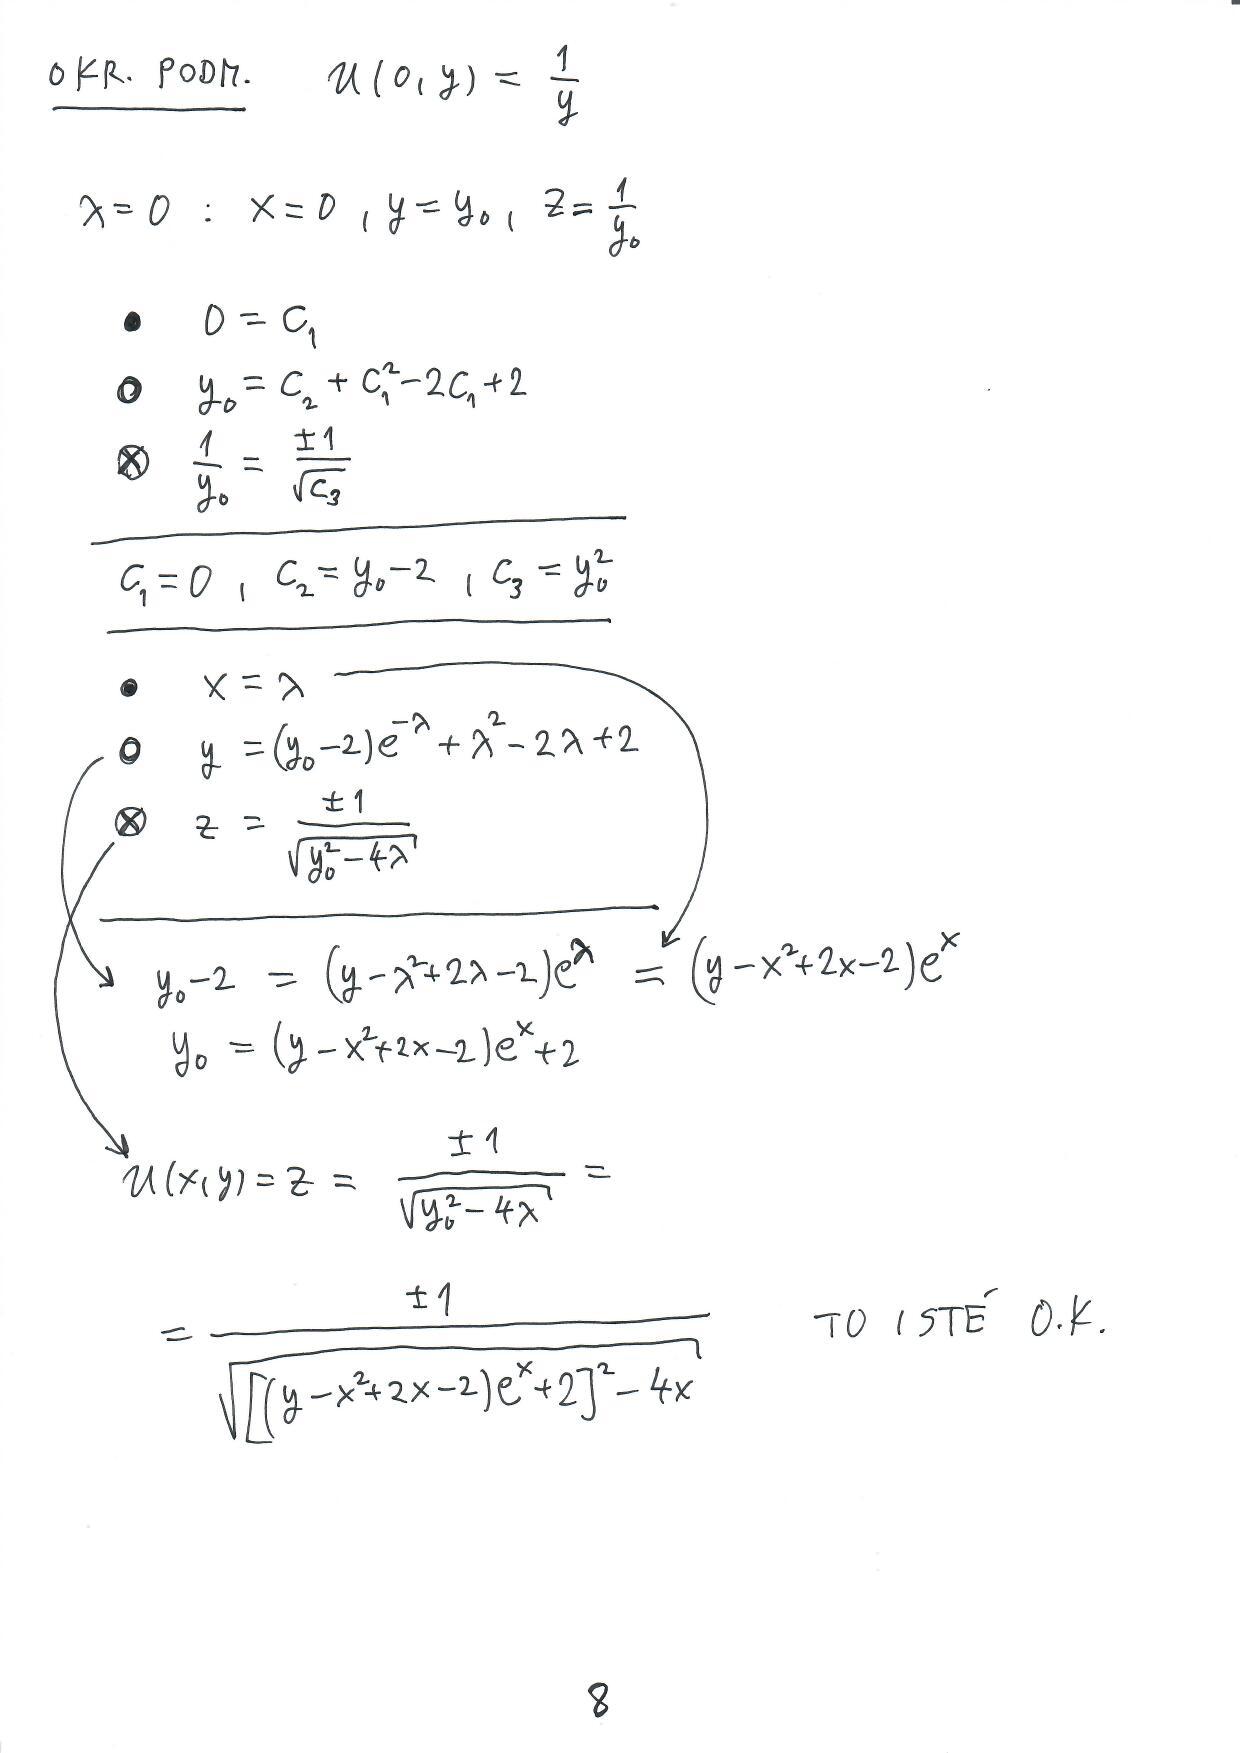 OKR. PODM. u(0,y) = 1/y
λ=0 : x=0, y=y₀, z=1/y₀
• 0 = C₁
○ y₀ = C₂ + C₁² - 2C₁ + 2
⊗ 1/y₀ = ±1/√C₃
C₁=0, C₂=y₀-2, C₃=y₀²
• x = λ
○ y = (y₀-2)e^(-λ) + λ² - 2λ + 2
⊗ z = ±1/√(y₀²-4λ)
y₀-2 = (y-λ²+2λ-2)e^λ = (y-x²+2x-2)e^x
y₀ = (y-x²+2x-2)e^x+2
u(x,y) = z = ±1/√(y₀²-4λ) =
= ±1/√([(y-x²+2x-2)e^x+2]²-4x) TO ISTÉ O.K.
8